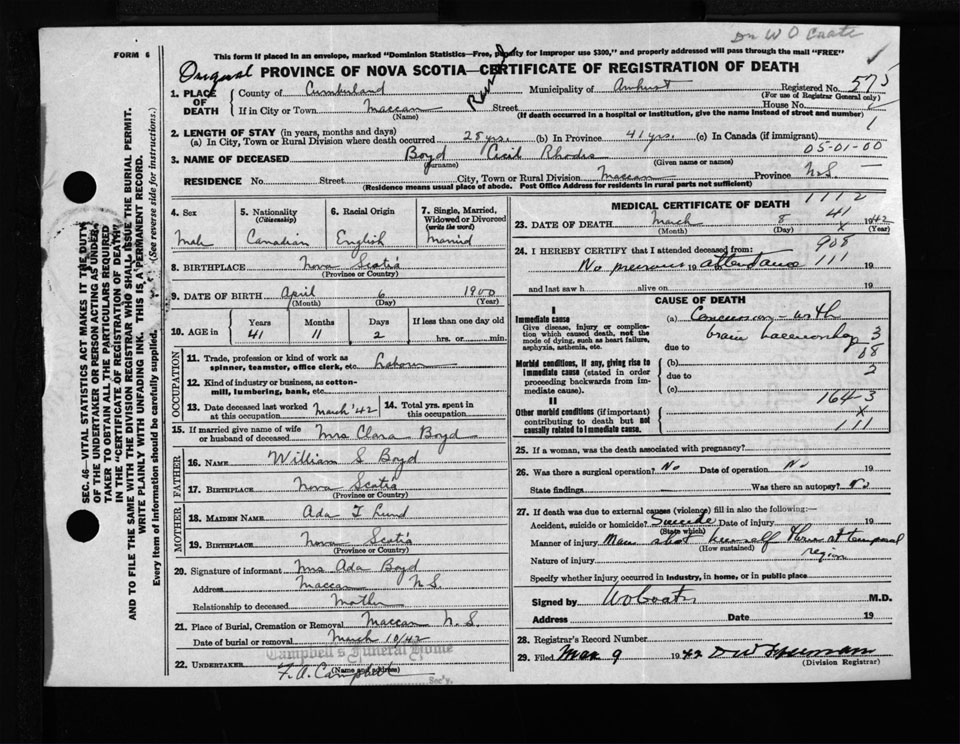 Dr W O Coates
FORM 6
This form if placed in an envelope, marked "Dominion Statistics—Free, penalty for improper use $300," and properly addressed will pass through the mail "FREE"
Original PROVINCE OF NOVA SCOTIA—CERTIFICATE OF REGISTRATION OF DEATH
1. PLACE OF DEATH
County of Cumberland Rural Municipality of Amherst Registered No. 575
(For use of Registrar General only)
If in City or Town Maccan Street House No.
(Name) (If death occurred in a hospital or institution, give the name instead of street and number)
2. LENGTH OF STAY (in years, months and days)
(a) In City, Town or Rural Division where death occurred 28 yrs. (b) In Province 41 yrs. (c) In Canada (if immigrant)
05-01-00
3. NAME OF DECEASED Boyd Cecil Rhodes
(Surname) (Given name or names)
RESIDENCE No. Street City, Town or Rural Division Maccan Province N.S.
(Residence means usual place of abode. Post Office Address for residents in rural parts not sufficient)
4. Sex 5. Nationality (Citizenship) 6. Racial Origin 7. Single, Married, Widowed or Divorced (write the word)
Male Canadian English Married
8. BIRTHPLACE Nova Scotia
(Province or Country)
9. DATE OF BIRTH April 6 1900
(Month) (Day) (Year)
10. AGE in Years Months Days If less than one day old
41 11 2 hrs. or min.
OCCUPATION
11. Trade, profession or kind of work as spinner, teamster, office clerk, etc. Laborer
12. Kind of industry or business, as cotton-mill, lumbering, bank, etc.
13. Date deceased last worked at this occupation March '42 14. Total yrs. spent in this occupation
15. If married give name of wife or husband of deceased Mrs Clara Boyd
FATHER
16. Name William S Boyd
17. Birthplace Nova Scotia
(Province or Country)
MOTHER
18. Maiden Name Ada T Lund
19. Birthplace Nova Scotia
(Province or Country)
20. Signature of informant Mrs Ada Boyd
Address Maccan N.S.
Relationship to deceased Mother
21. Place of Burial, Cremation or Removal Maccan N.S.
Date of burial or removal March 10/42
Campbell's Funeral Home
22. Undertaker F. A. Campbell
(Name and address)
Sec'y.
1112
MEDICAL CERTIFICATE OF DEATH
41
23. DATE OF DEATH March 8 1942
(Month) (Day) (Year)
x
24. I HEREBY CERTIFY that I attended deceased from:
908
No previous 19 attendance 111 19
and last saw h alive on 19
CAUSE OF DEATH
I
Immediate cause
Give disease, injury or complication which caused death, not the mode of dying, such as heart failure, asphyxia, asthenia, etc.
(a) Concussion - with
brain haemorrhage 3
due to 08
Morbid conditions, if any, giving rise to immediate cause (stated in order proceeding backwards from immediate cause).
(b) 3
due to
(c)
1643
II
Other morbid conditions (if important) contributing to death but not causally related to immediate cause.
x
111
25. If a woman, was the death associated with pregnancy?
26. Was there a surgical operation? No Date of operation No 19
State findings Was there an autopsy? no
27. If death was due to external causes (violence) fill in also the following:—
Accident, suicide or homicide? Suicide Date of injury 19
(State which)
Manner of injury Man shot himself thru rt temporal
(How sustained) region
Nature of injury
Specify whether injury occurred in industry, in home, or in public place
Signed by W O Coates M.D.
Address Date 19
28. Registrar's Record Number
29. Filed Mar 9 1942
(Division Registrar)
SEC. 46—VITAL STATISTICS ACT MAKES IT THE DUTY OF THE UNDERTAKER OR PERSON ACTING AS UNDERTAKER TO OBTAIN ALL THE PARTICULARS REQUIRED IN THE "CERTIFICATE OF REGISTRATION OF DEATH" AND TO FILE THE SAME WITH THE DIVISION REGISTRAR WHO SHALL ISSUE THE BURIAL PERMIT.
WRITE PLAINLY WITH UNFADING INK. THIS IS A PERMANENT RECORD.
Every item of information should be carefully supplied. (See reverse side for instructions).